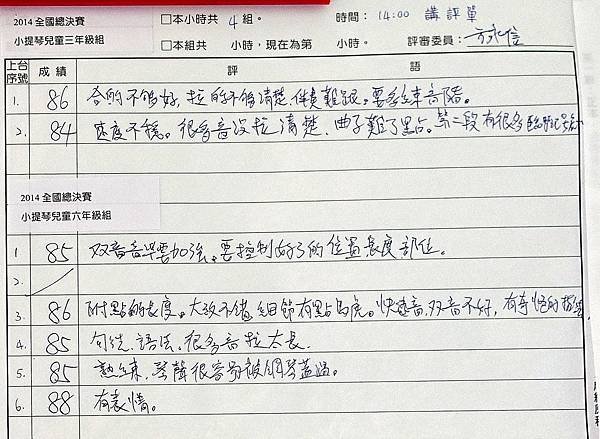 2014 全國總決賽
小提琴兒童三年級組
□本小時共 4 組。 時間: 14:00 講評單
□本組共 小時,現在為第 小時。 評審委員:
上台序號 成績 評語
1. 86 合的不夠好,拉的不夠清楚,伴奏難跟。要多練音階。
2. 84 速度不穩。很多音沒拉清楚、曲子難了點。第二段有很多臨時記號
2014 全國總決賽
小提琴兒童六年級組
1 85 双音音準要加強。要控制好弓的位置長度部位。
2.
3. 86 附點的長度。大致不錯,細節有點馬虎。快速音,双音不好,有奇怪的
4. 85 句法、語法、很多音拉太長.
5. 85 熟練,琴聲很容易被鋼琴蓋過。
6. 88 有表情。